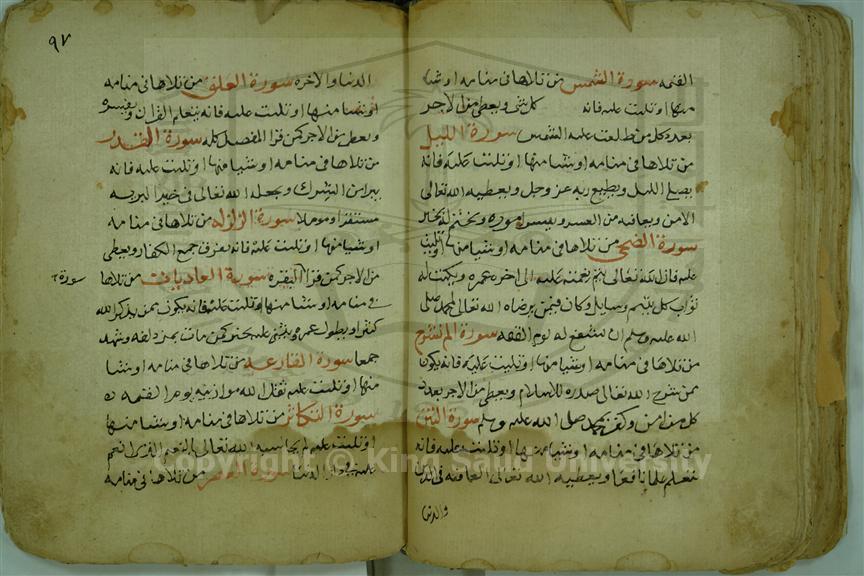 القيمه سورة الشمس من تلاها في منامه او شيا
منها او تليت عليه فانه كل شي ويعطى من الاجر
بعدد كل من طلعت عليه الشمس سورة الليل
من تلاها في منامه او شيا منها او تليت عليه فانه
يصلي الليل ويطيع ربه عز وجل ويعطيه الله تعالى
الامن ويعافيه من العسر وييسر اموره ويختم له بخير
سورة الضحى من تلاها في منامه او شيا منها او تليت
عليه فان الله تعالى يتم نعمته عليه الى اخر عمره ويكتب له
ثواب كل يتيم وسايل وكان فيمن يرضاه الله تعالى لمحمد صلى
الله عليه وسلم ان يشفع له يوم القيمه سورة الم نشرح
من تلاها في منامه او شيا منها او تليت عليه فانه يكون
ممن شرح الله تعالى صدره للاسلام ويعطى من الاجر بعدد
كل من امن وكفر بمحمد صلى الله عليه وسلم سورة التين
من تلاها في منامه او شيا منها او تليت عليه فانه
يتعلم علما نافعا ويعطيه الله تعالى العافيه في
والدنيا
٩٧
الدنيا والاخره سورة العلق من تلاها في منامه
او شيا منها او تليت عليه فانه يتعلم القران ويفسره
ويعطى من الاجر كمن قرا المفصل كله سورة القدر
من تلاها في منامه او شيا منها او تليت عليه فانه
يبرا من الشرك ويجعله الله تعالى في خير البريه
مستقرا وموملا سورة الزلزله من تلاها في منامه
او شيا منها او تليت عليه فانه يفرق جمع الكفار ويعطى
من الاجر كمن قرا البقره سورة العاديات من تلاها
سورة
في منامه او شيا منها او تليت عليه فانه يكون ممن يذكر الله
كثيرا ويطول عمره كمن مات بمزدلفه وشهد
جمعا سورة القارعه من تلاها في منامه او شيا
منها او تليت عليه ثقل الله موازينه يوم القيمه
سورة التكاثر من تلاها في منامه او شيا منها
او تليت عليه لم يحاسبه الله تعالى بالنعيم الذي انعم
عليه في دار الدنيا سورة العصر من تلاها في منامه
Copyright © King Saud University